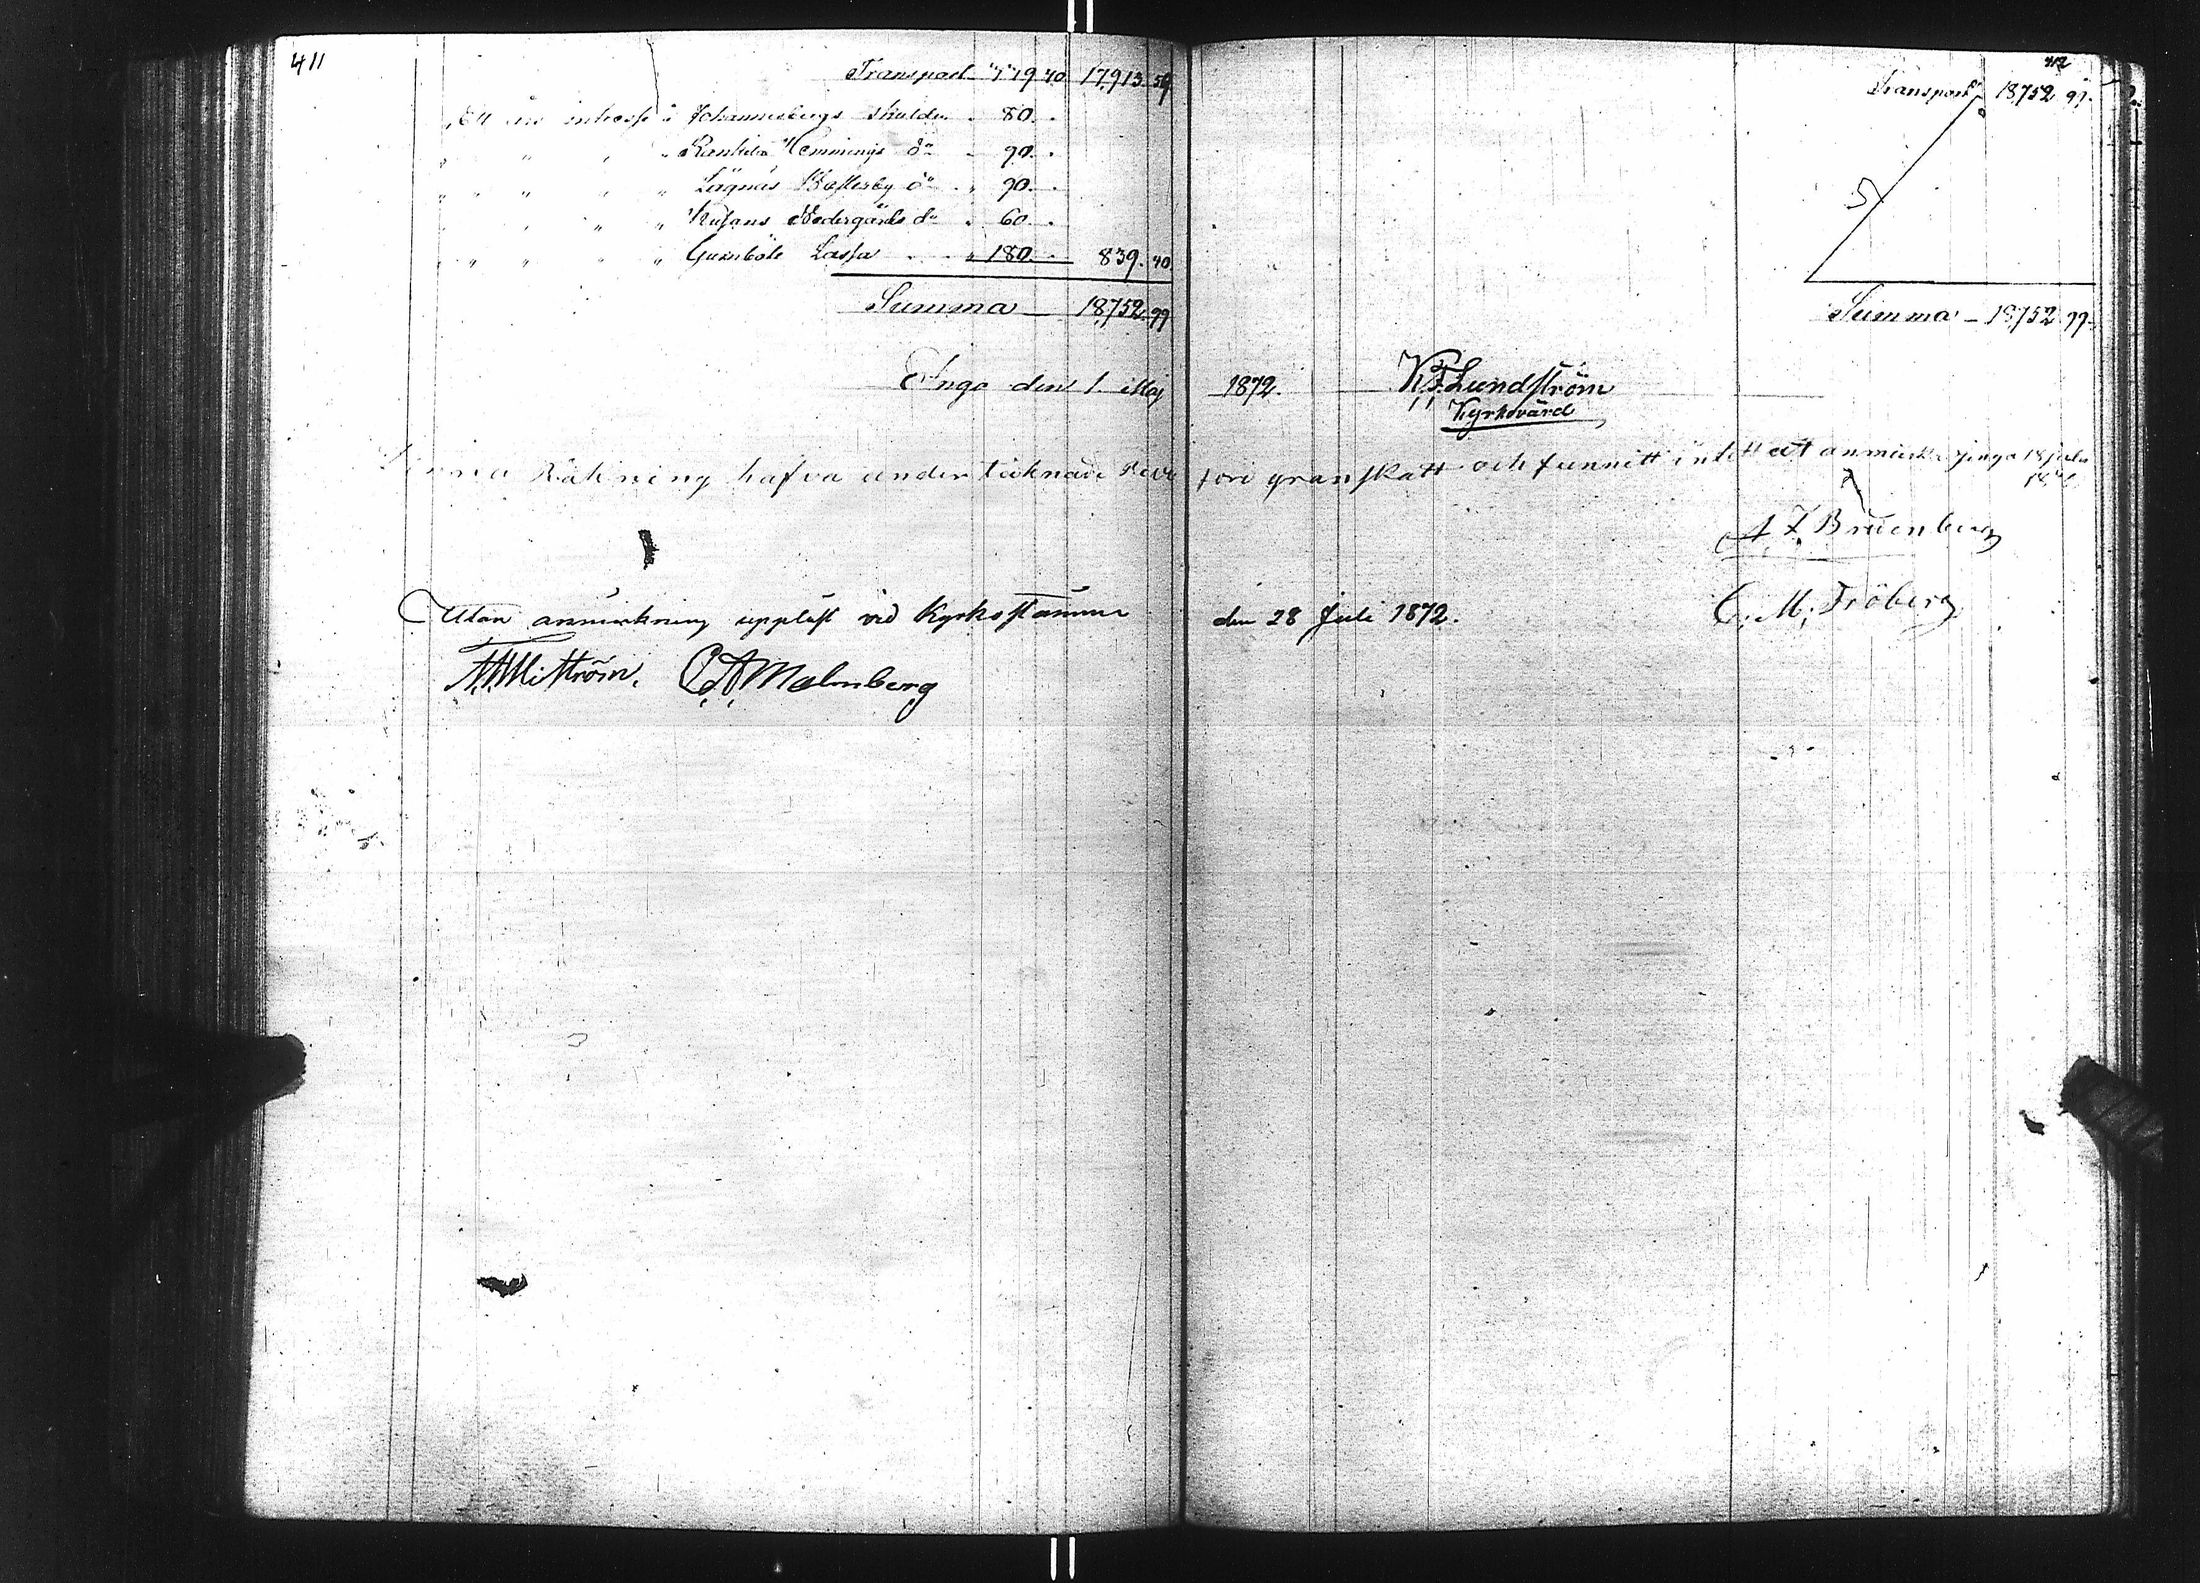 411
Transport 17,913. 59
Ett års intresse å Johannesbergs skulden 80.
" " " " Rankila Hemmings do 90.
" " " " Lågnäs Westerby do 90.
" " " " Södergårds do 60.
" " " " Gumböle Lassa 180. 839. 40
Summa 18,752. 99
Ingå den 1 Maj 1872. K. F. Lundström
Kyrkovärd
Denna Räkning hafva undertecknade Revisori granskatt och funnitt intett att anmärka Jnga 18 Juli
A. F. Bruenberg
C. M. Fröberg
Utan anmärkning uppläst vid Kyrkostämma den 28 Juli 1872.
C A Malmberg
412
Transport 18,752 99.
Summa 18,752 99.